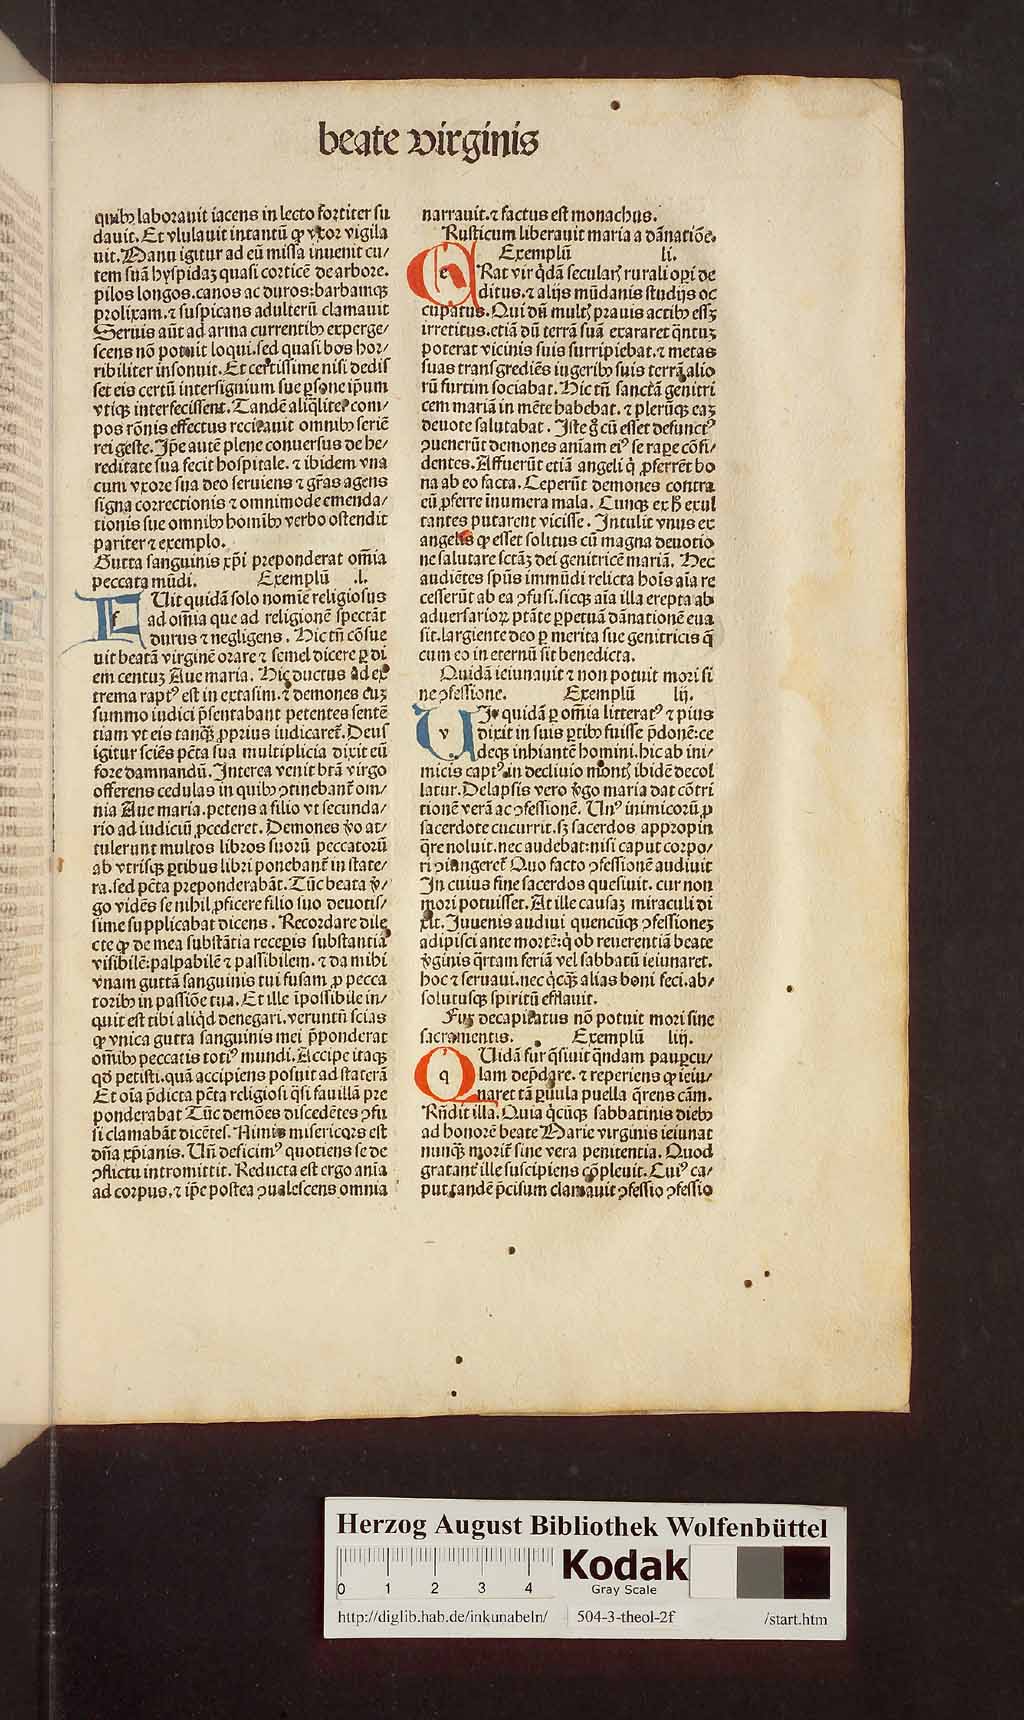 beate virginis
quibꝫ laborauit iacens in lecto fortiter su
dauit. Et vlulauit intantū ꝙ vxor vigila
uit. Manu igitur ad eū missa inuenit cu/
tem suā hyspidaꝫ quasi corticē de arbore.
pilos longos. canos ac duros: barbamqꝫ
prolixam. ⁊ suspicans adulterū clamauit
Seruis aūt ad arma currentibꝫ experge/
scens nō potuit loqui. sed quasi bos hor/
ribiliter insonuit. Et certissime nisi dedis
set eis certū intersignium sue ꝑsone ip̄um
vtiqꝫ interfecissent. Tandē aliq̄liter com/
pos rōnis effectus recitauit omnibꝫ seriē
rei geste. Ip̄e autē plene conuersus de he/
reditate sua fecit hospitale. ⁊ ibidem vna
cum vxore sua deo seruiens ⁊ gr̄as agens
signa correctionis ⁊ omnimode emenda/
tionis sue omnibꝫ hominibꝫ verbo ostendit
pariter ⁊ exemplo.
Gutta sanguinis xp̄i preponderat om̄ia
peccata mūdi. Exemplū .l.
f Uit quidā solo nomīe religiosus
ad om̄ia que ad religionē spectāt
durus ⁊ negligens. Hic tn̄ cōsue
uit beatā virginē orare ⁊ semel dicere ꝑ di
em centuꝫ Aue maria. Hic ductus ad ex
trema raptꝰ est in extasim. ⁊ demones euꝫ
summo iudici p̄sentabant petentes sentē
tiam vt eis tanqꝫ ꝓprius iudicaret̄. Deus
igitur sciēs pc̄ta sua multiplicia dixit eū
fore damnandū. Interea venit btā virgo
offerens cedulas in quibꝫ ꝯtinebant̄ om/
nia Aue maria. petens a filio vt secunda/
rio ad iudiciū ꝓcederet. Demones v̄o at/
tulerunt multos libros suorū peccatorū
ab vtrisqꝫ ꝑtibus libri ponebant̄ in state/
ra. sed pc̄ta preponderabāt. Tūc beata v̄/
go vidēs se nihil ꝓficere filio suo deuotis/
sime supplicabat dicens. Recordare dile
cte ꝙ de mea substātia receꝑis substantiā
visibilē: palpabilē ⁊ passibilem. ⁊ da mihi
vnam guttā sanguinis tui fusam ꝓ pecca
toribꝫ in passiōe tua. Et ille īpossibile in/
quit est tibi aliqd̄ denegari. veruntū scias
ꝙ vnica gutta sanguinis mei p̄ponderat
om̄ibꝫ peccatis totiꝰ mundi. Accipe itaqꝫ
qd̄ petisti. quā accipiens posuit ad staterā
Et oīa p̄dicta pc̄ta religiosi q̄si fauillā pre
ponderabat Tūc demōes discedētes ꝯfu
si clamabāt dicētes. Nimis misericors est
dn̄a xp̄ianis. Un̄ desicimꝰ quotiens se de
ꝯflictu intromittit. Reducta est ergo anīa
ad corpus. ⁊ ip̄e postea ꝯualescens omnia
narrauit. ⁊ factus est monachus.
Rusticum liberauit maria a dānatiōe.
Exemplū li.
e Rat vir q̇dā seculariꝰ rurali oꝑi de
ditus. ⁊ alijs mūdanis studijs oc
cupatus. Qui dū multꝭ prauis actibꝫ esꝫ
irretitus. etiā dū terrā suā exararet q̄ntuꝫ
poterat vicinis suis surripiebat. ⁊ metas
suas transgrediēs iugeribꝫ suis terrā alio
rū furtim sociabat. Hic tn̄ sanctā genitri
cem mariā in mēte habebat. ⁊ plerūqꝫ eaꝫ
deuote salutabat. Iste g̊ cū esset defunctꝰ
ꝯuenerūt demones aniam eiꝰ se raꝑe cōfi/
dentes. Affuerūt etiā angeli q̇ ꝓferrēt bo
na ab eo facta. Ceperūt demones contra
eū ꝓferre īnumera mala. Cunqꝫ ex h̄ exul
tantes putarent vicisse. Intulit vnus ex
angelis ꝙ esset solitus cū magna deuotio
ne salutare sctāꝫ dei genitricē mariā. Hec
audiētes spūs immūdi relicta hoīs aīa re
cesserūt ab ea ꝯfusi. sicqꝫ aīa illa erepta ab
aduersarioꝝ ptāte ꝑpetuā dānationē eua
sit. largiente deo ꝑ merita sue genitricis q̄
cum eo in eternū sit benedicta.
Quidā ieiunauit ⁊ non potuit mori si
ne ꝯfessione. Exemplū lij.
v Ir quidā ꝑ om̄ia litteratꝰ ⁊ pius
dixit in suis ꝑtibꝫ fuisse p̄donē: ce
deqꝫ inhiantē homini. hic ab ini/
micis captꝰ in decliuio montꝭ ibidē decol
latur. Delapsis vero v̄go maria dat cōtri
tionē verā ac ꝯfessionē. Unꝰ inimicorū ꝓ
sacerdote cucurrit. sꝫ sacerdos appropin
q̄re noluit. nec audebat: nisi caput corpo/
ri ꝯiangeret̄ Quo facto ꝯfessionē audiuit
In cuius fine sacerdos quesiuit. cur non
mori potuisset. At ille causaꝫ miraculi di
xit. Iuuenis audiui quencūqꝫ ꝯfessioneꝫ
adipisci ante mortē: q̇ ob reuerentiā beate
v̄ginis q̄rtam feriā vel sabbatū ieiunaret.
hoc ⁊ seruaui. nec q̇cqꝫ alias boni feci. ab/
solutusqꝫ spiritū efflauit.
Fur decapitatus nō potuit mori sine
sacramentis. Exemplū liij.
q Uidā fur q̄siuit q̄ndam pauꝑcu/
lam dep̄dare. ⁊ reperiens ꝙ ieiu/
naret tā ꝑuula puella q̄rens cām.
Rn̄dit illa. Quia q̇cūqꝫ sabbatinis diebꝫ
ad honorē beate Marie virginis ieiunat
nunqꝫ morit̄ sine vera penitentia. Quod
gratant̄ ille suscipiens cōpleuit. Cuiꝰ ca/
put tandē p̄cisum clamauit ꝯfessio ꝯfessio
Herzog August Bibliothek Wolfenbüttel
0 1 2 3 4
Kodak
Gray Scale
http://diglib.hab.de/inkunabeln/ 504-3-theol-2f /start.htm